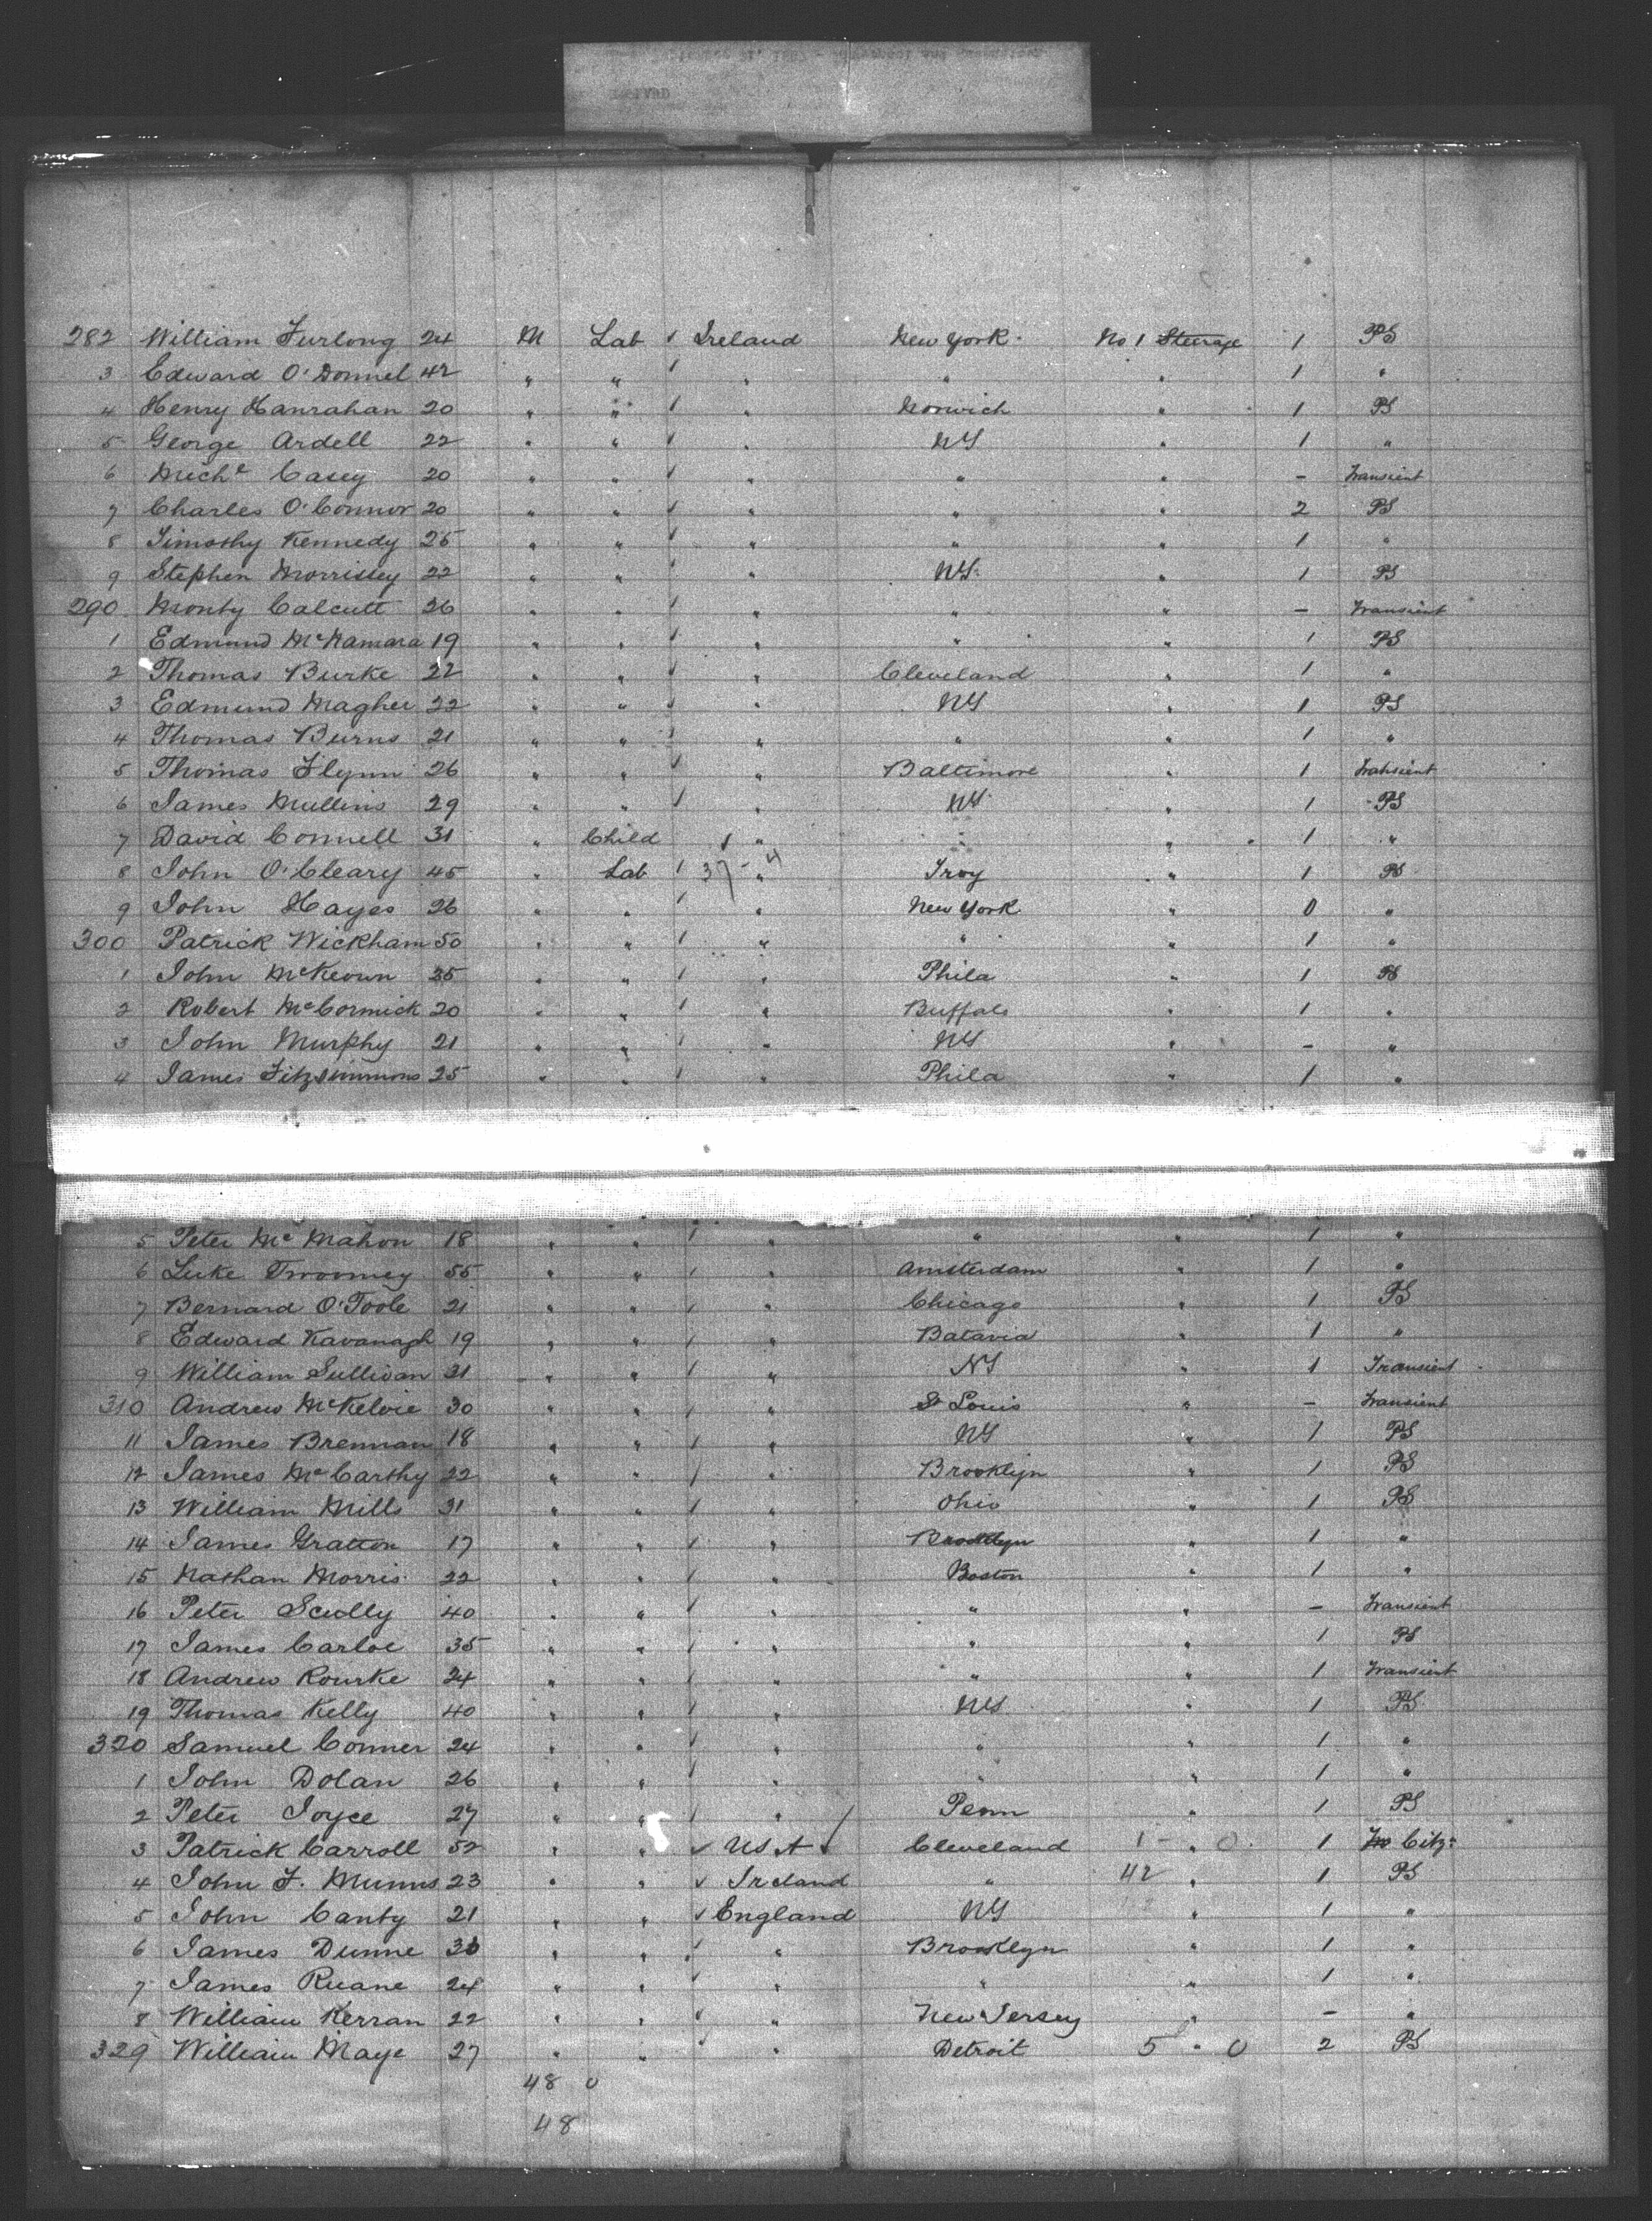 282 William Furlong 24 M Lab ✓ Ireland New York No 1 Steerage 1 PS
3 Edward O'Donnel 42 " " ✓ " " " 1 "
4 Henry Hanrahan 20 " " ✓ " Norwich " 1 PS
5 George Ardell 22 " " ✓ " NY " 1 "
6 Michl Casey 20 " " ✓ " " " - Transient
7 Charles O'Connor 20 " " ✓ " " " 2 PS
8 Timothy Kennedy 25 " " ✓ " " " 1 "
9 Stephen Morrissey 22 " " ✓ " NY " 1 PS
290 Monty Calcutt 26 " " ✓ " " " - Transient
1 Edmund McNamara 19 " " ✓ " " " 1 PS
2 Thomas Burke 22 " " ✓ " Cleveland " 1 "
3 Edmund Magher 22 " " ✓ " NY " 1 PS
4 Thomas Burns 21 " " ✓ " " " 1 "
5 Thomas Flynn 26 " " ✓ " Baltimore " 1 Transient
6 James Mullins 29 " " ✓ " NY " 1 PS
7 David Connell 31 " Child ✓ " " " 1 "
8 John O'Cleary 45 " Lab ✓ 37 - " 4 Troy " 1 PS
9 John Hayes 26 " " ✓ " New York " 0 "
300 Patrick Wickham 50 " " ✓ " " " 1 "
1 John McKeown 35 " " ✓ " Phila " 1 PS
2 Robert McCormick 20 " " ✓ " Buffalo " 1 "
3 John Murphy 21 " " ✓ " NY " - "
4 James Fitzsimmons 25 " " ✓ " Phila " 1 "
5 Peter McMahon 18 " " ✓ " " " 1 "
6 Luke Twoomey 55 " " ✓ " Amsterdam " 1 "
7 Bernard O'Toole 21 " " ✓ " Chicago " 1 PS
8 Edward Kavanagh 19 " " ✓ " Batavia " 1 "
9 William Sullivan 31 " " ✓ " NY " 1 Transient
310 Andrew McKelvie 30 " " ✓ " St Louis " - Transient
11 James Brennan 18 " " ✓ " NY " 1 PS
12 James McCarthy 22 " " ✓ " Brooklyn " 1 PS
13 William Mills 31 " " ✓ " Ohio " 1 PS
14 James Gratton 17 " " ✓ " Brooklyn " 1 "
15 Nathan Morris 22 " " ✓ " Boston " 1 "
16 Peter Scully 40 " " ✓ " " " - Transient
17 James Carloe 35 " " ✓ " " " 1 PS
18 Andrew Rourke 24 " " ✓ " " " 1 Transient
19 Thomas Kelly 40 " " ✓ " NY " 1 PS
320 Samuel Conner 24 " " ✓ " " " 1 "
1 John Dolan 26 " " ✓ " " " 1 "
2 Peter Joyce 27 " " ✓ " Penn " 1 PS
3 Patrick Carroll 52 " " ✓ USA ✓ Cleveland 1 - " 0 1 Citz
4 John F. Munns 23 " " ✓ Ireland " 42 " 1 PS
5 John Canty 21 " " ✓ England NY " 1 "
6 James Dunne 30 " " ✓ " Brooklyn " 1 "
7 James Ruane 24 " " ✓ " " " 1 "
8 William Kerran 22 " " ✓ " New Jersey " - "
329 William Maye 27 " " ✓ " Detroit 5 " 0 2 PS
48 0
48